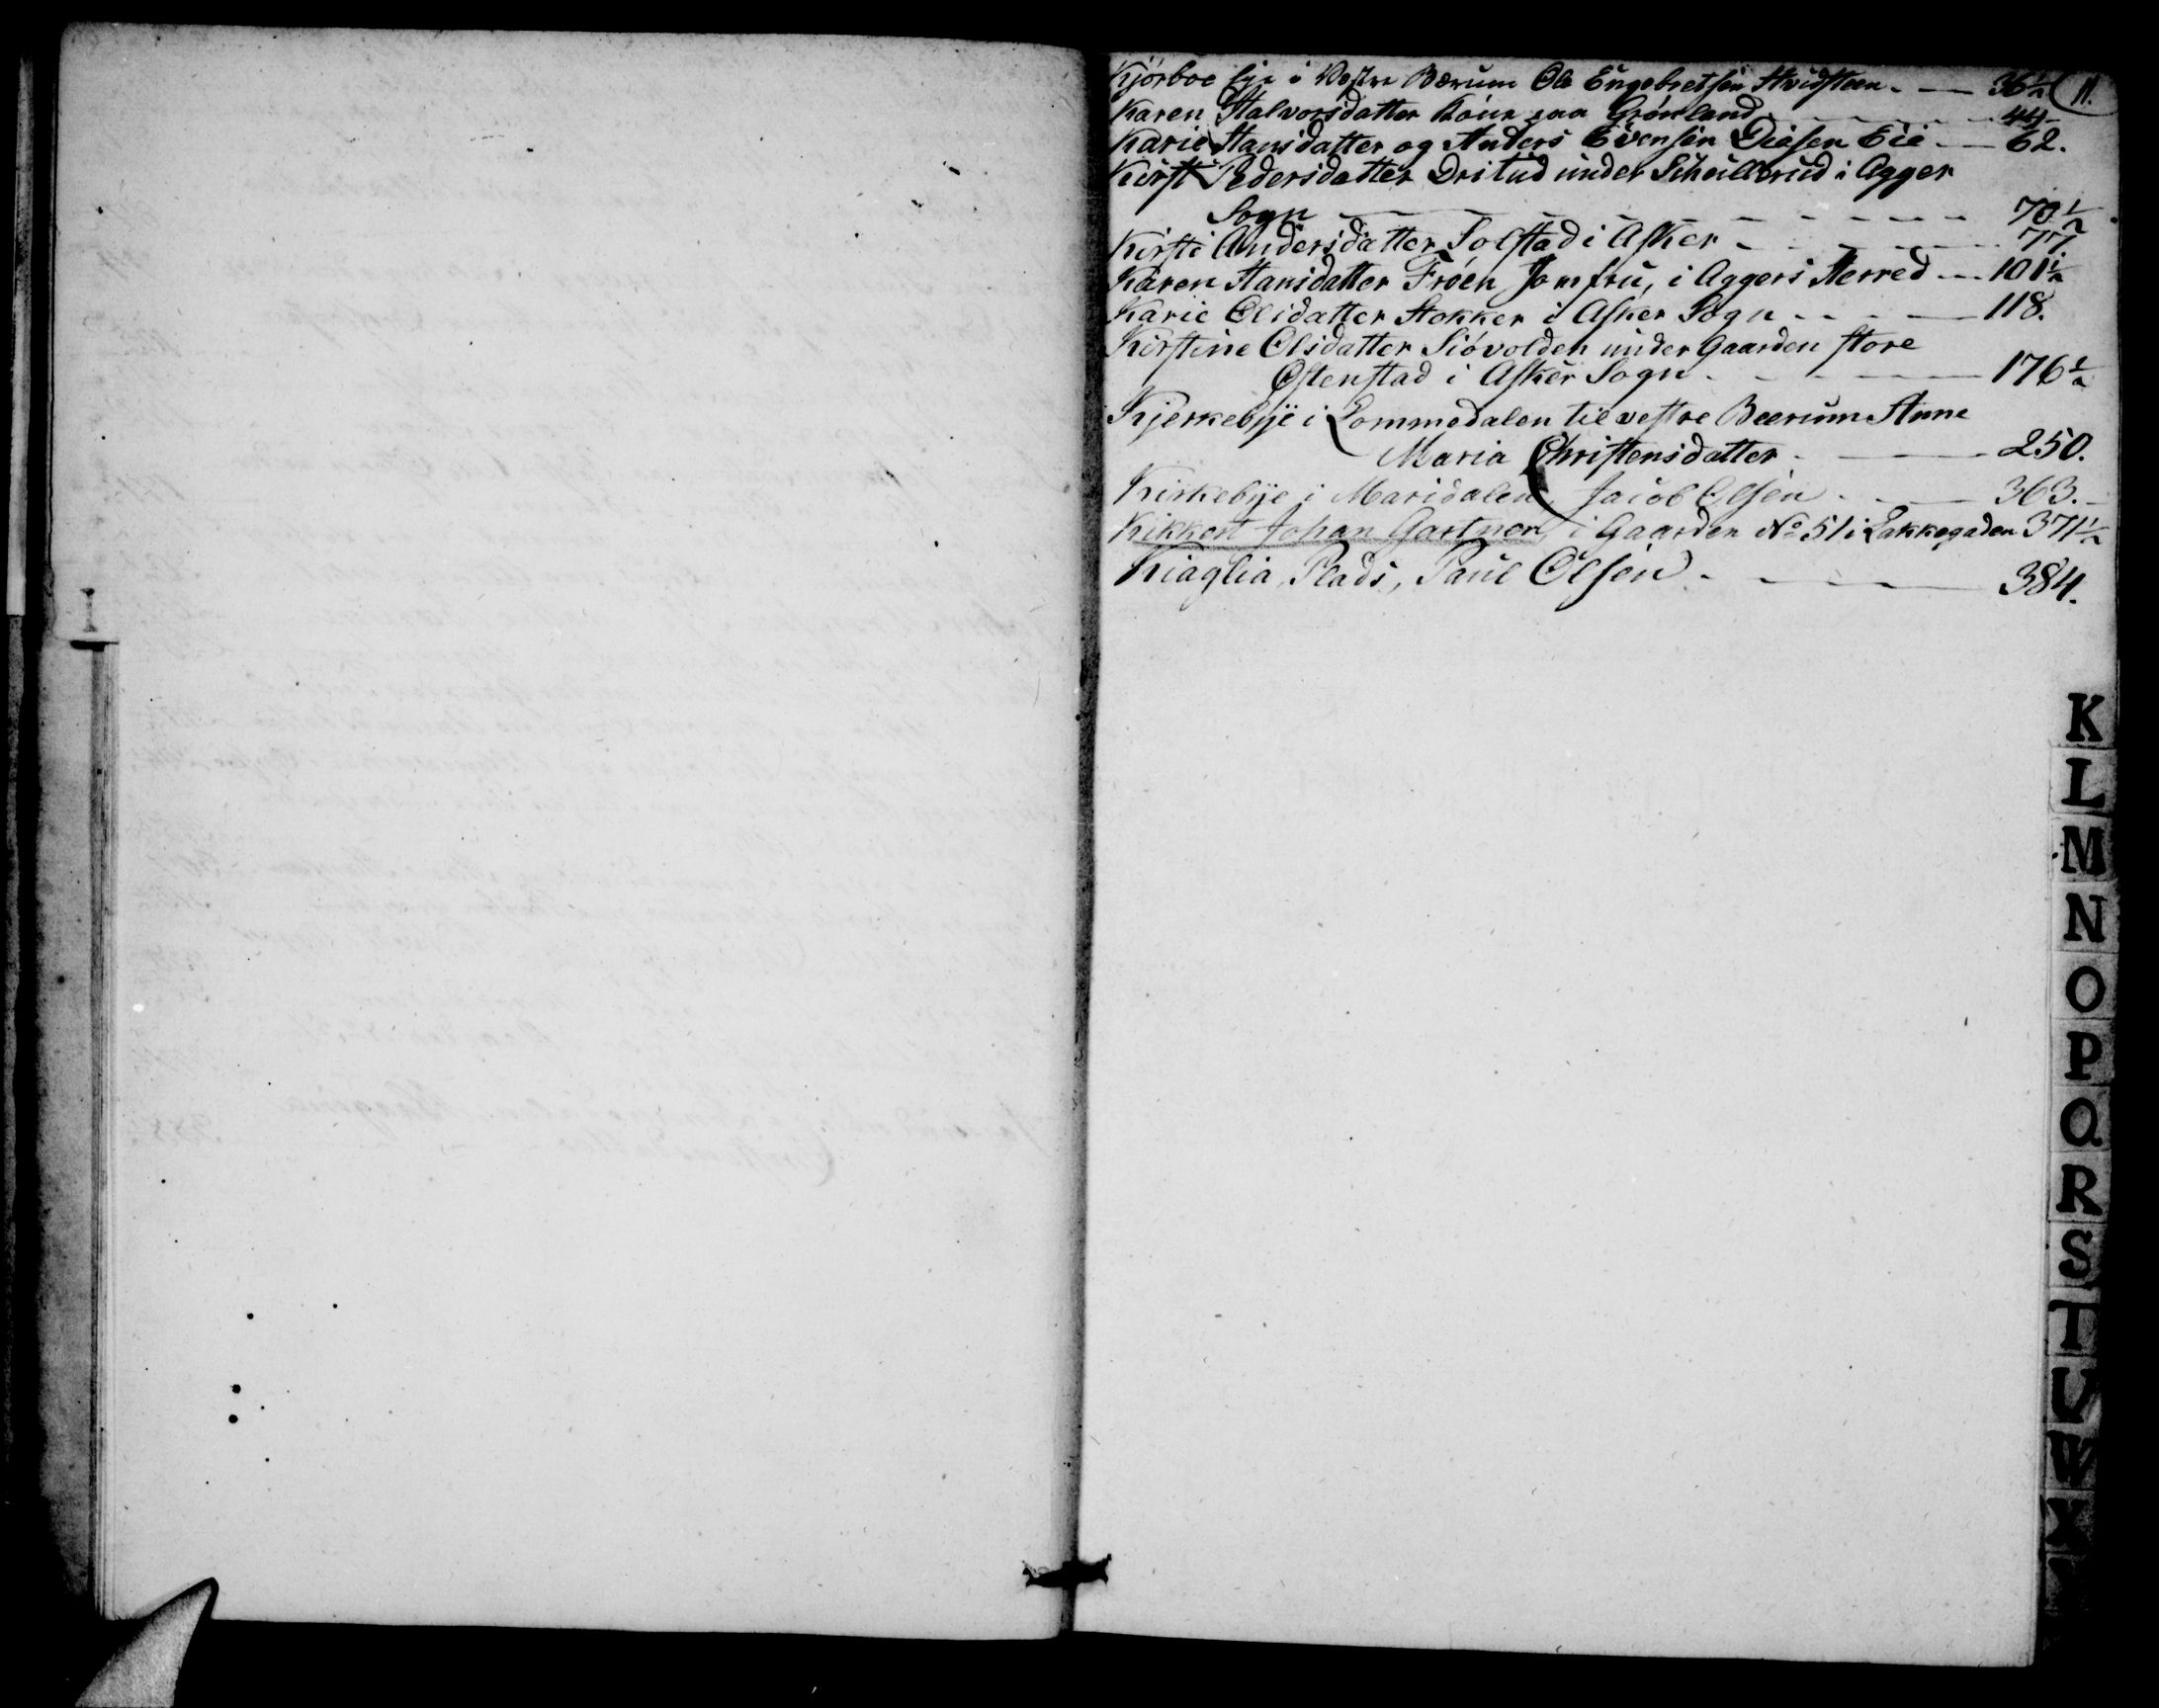 Kjörboe Eje i Vestre Bærum Ole Engebretsen Hvidsteen - 36½ 11.
Karen Halvorsdatter Kone paa Grönland - 44
Karie Hansdatter og Anders Evensen Diesen Eie - 62.
Kirsti Pedersdatter Dritud under Schullerud i Agger
Sogn - 70½
Kirsti Andersdatter Solstad i Asker - 77
Karen Hansdatter Fröen Jomfru, i Aggers Herred - 101½
Karie Olsdatter Stokker i Asker Sogn - 118.
Kirstine Olsdatter Siövolden under Gaarden store
Østenstad i Asker Sogn - 176½
Kjerkebÿe i Lommedalen til vestre Beerum Anne
Maria Christensdatter - 250.
Kirkebÿe i Maridalen, Jacob Olsen - 363.
Kikkert Johan Gartner, i Gaarden No 51 i Lakkegaden 371½
Kiaglia, Plads, Paul Olsen - 384.
K
L
M
N
O
P
Q
R
S
T
U
W
X